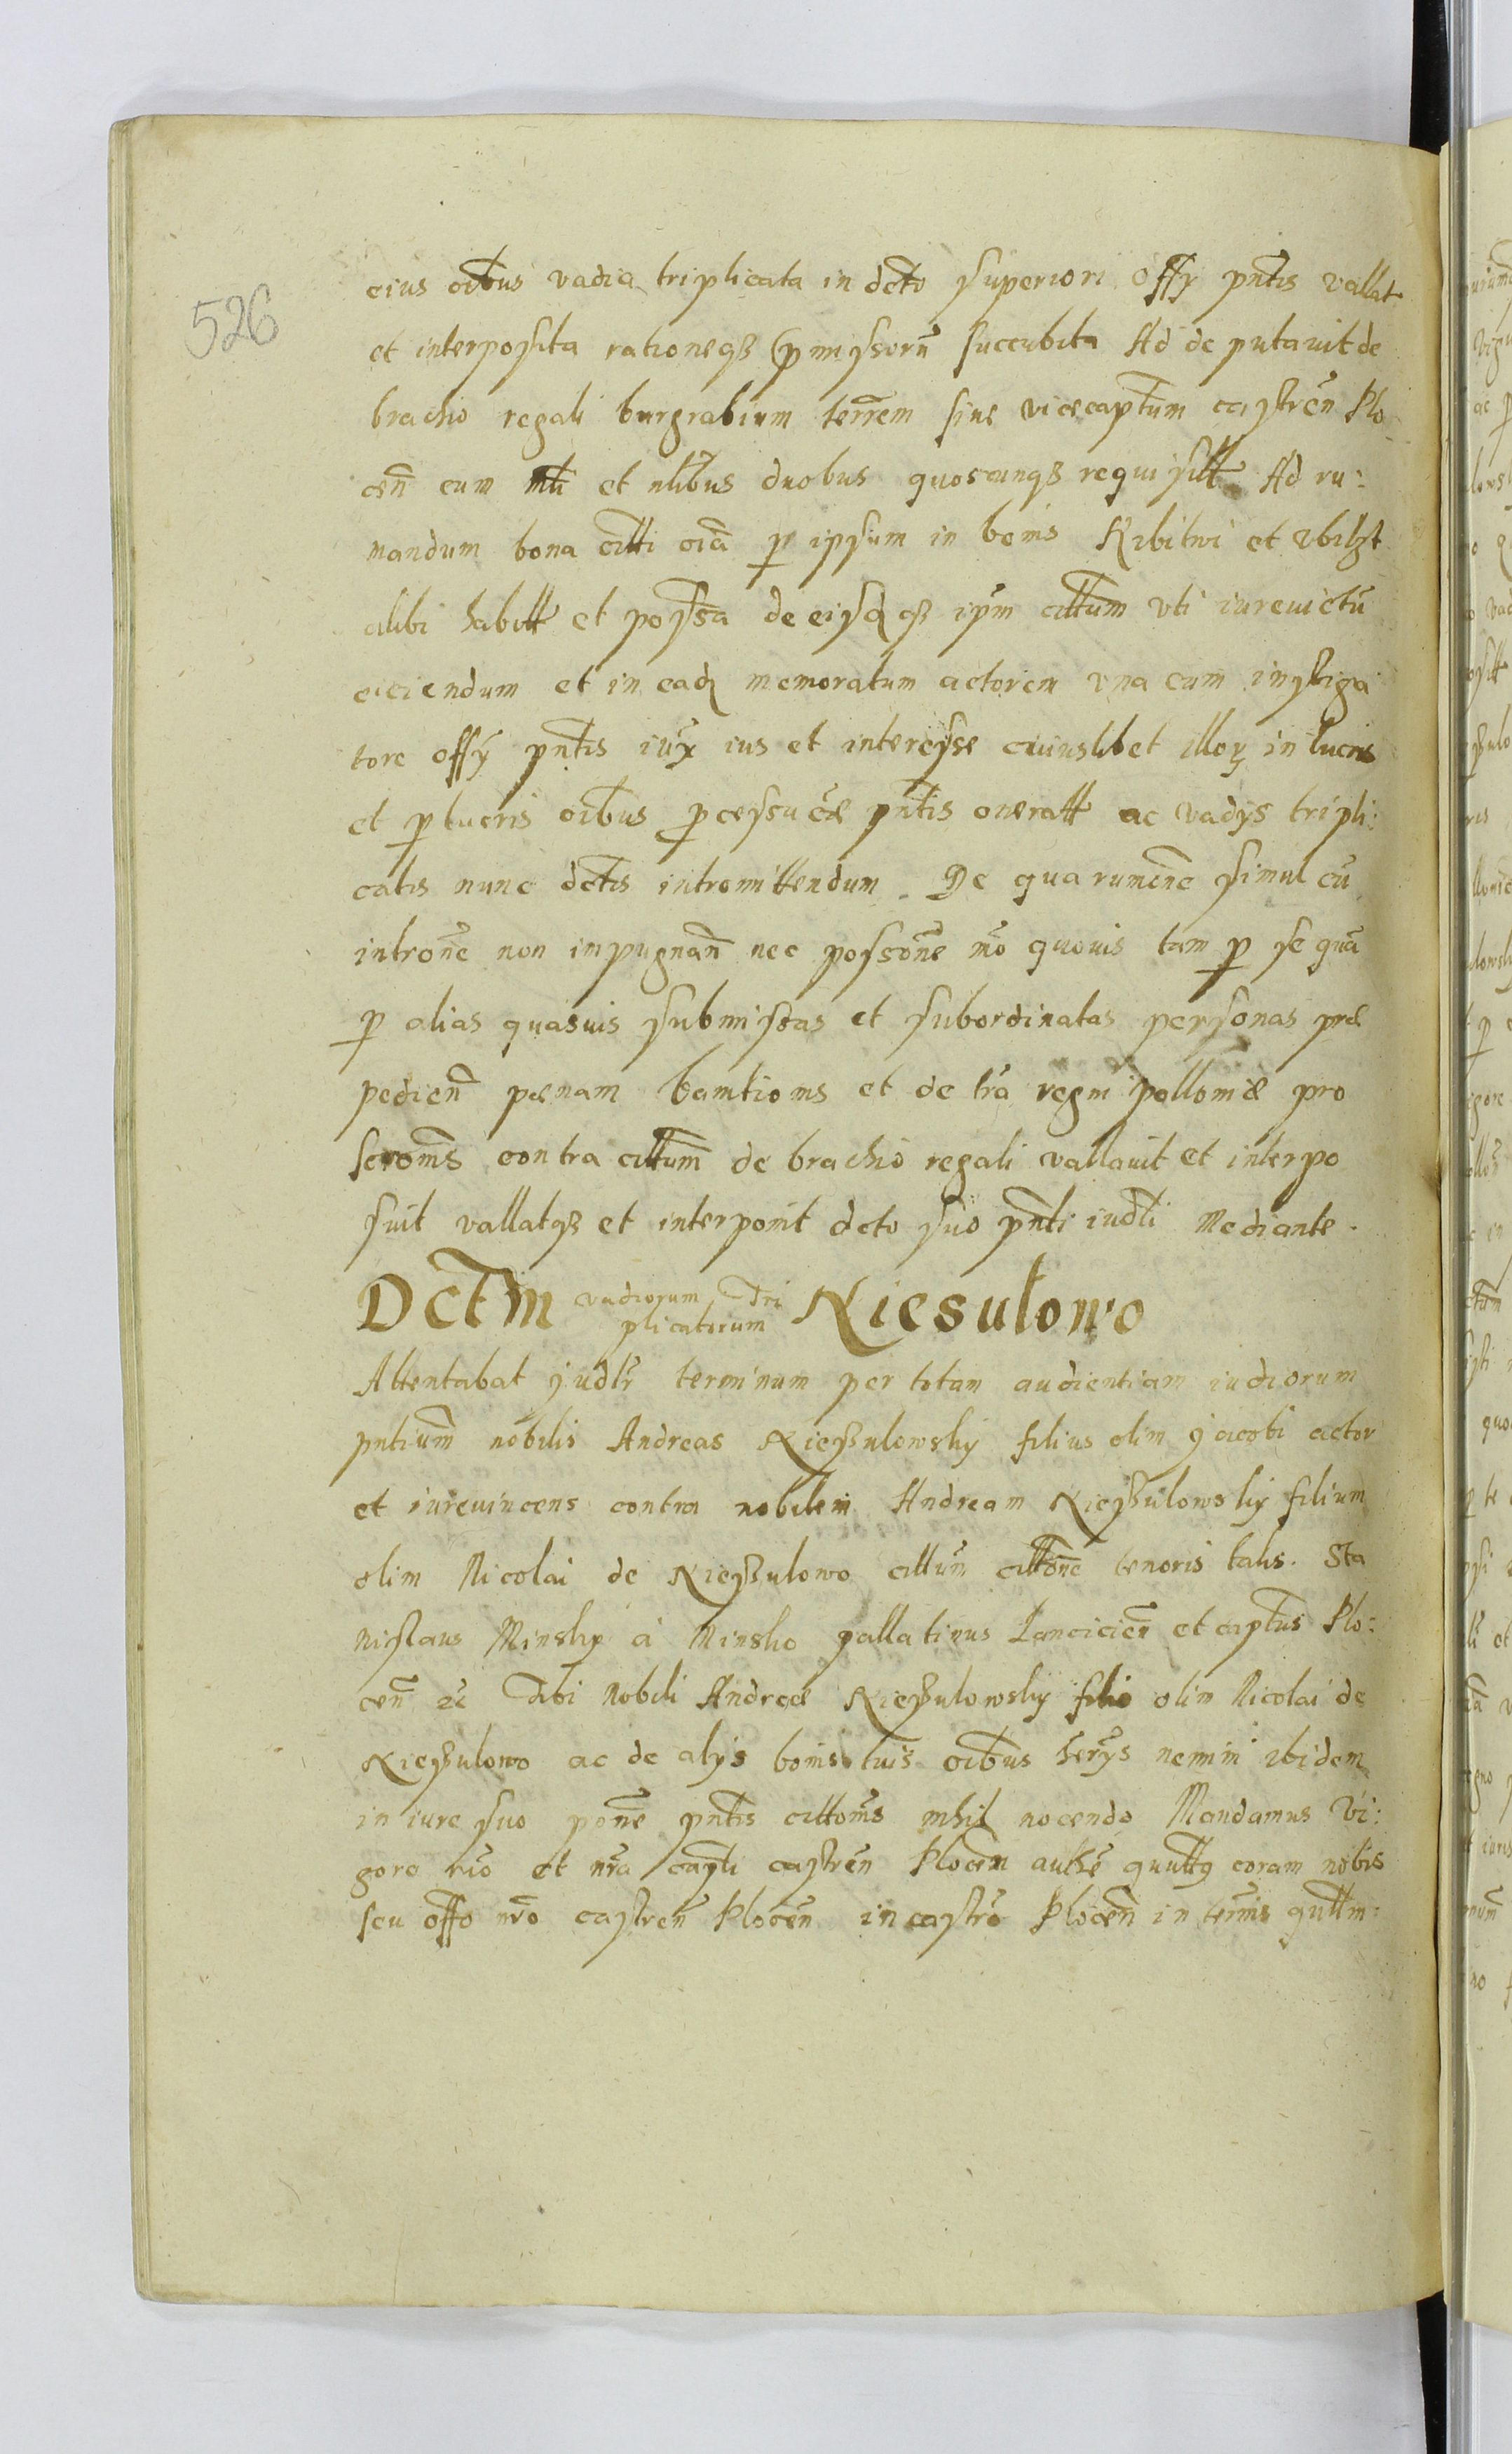 526
eius oībus vadia triplicata in dcto superiori offy pntis vallat
et interposita rationeqз pmissorū succubita Ad de putauit de
brachio regali burgrabium terrēm siue vicecaptum castrēn Plo
cēn cum mti et nlibus duobus quoscunqз requisitt Ad ru:
nandum bona citti oīa p ipsum in bonis Kibitwi et vbilзt
alibi habitt et possa de eisdqз ipm cittum vti iureuictū
eiciendum et in eadз memoratum actorem vna cum instiga
tore offy pntis iuх ius et interesse cuiuslibet illoꝝ in lucris
et p lucris oībus pcessu cæ pntis oneratt ac vadys tripli:
catis nunc dctis intromittendum. De qua rumōne simul cū
introne non impugnān nec possone mō quouis tam p se quā
p alias quasuis submissas et subordinatas personas præ
pediēn pænam bannitionis et de tra regni polloniæ pro
scronis contra cittum de brachio regali vallauit et interpo
suit vallatqз et interponit dcto suo pnti iudti Mediante.
Dctm vadiorum Tri
plicatorum Niesułowo
Attentabat judłr terminum per totam audientiam iudiorum
pntium nobilis Andreas Niesзulowsky filius olim jacobi actor
et iureuincens contra nobilem Andream Niesзulowsky filium
olim Nicolai de Niesзulowo cittum cittone tenoris talis. Sta
nislaus Minsky a Minsko pallatinus Lanciciēn et captus Plo:
cēn etc Tibi Nobili Andreæ Niesзulowsky filio olim Nicolai de
Niesзulowo ac de alys bonis tuis oībus herys nemini ibidem
in iure suo pone pntis cittonis nihil nocendo Mandamus Vi:
gore rio et nra capti castrēn Plocēn authe quattз coram nobis
seu offo nro castrēn Plocēn in castro Plocēn in termis quttm: